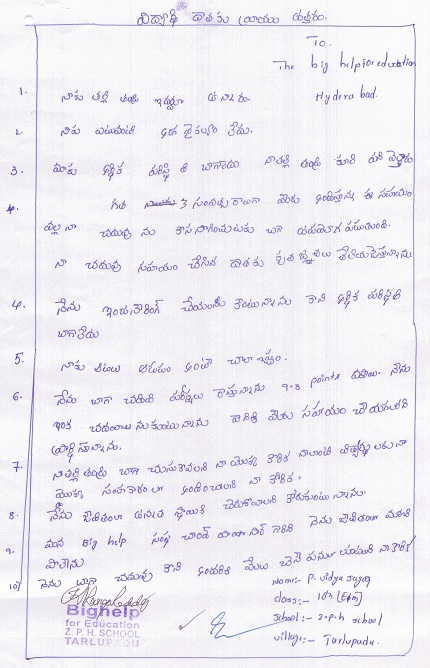 విద్యార్థి దాతకు వ్రాయు ఉత్తరం.
To.
The big help for education
Hyderabad.
1. నాకు తల్లి తండ్రి ఇద్దరూ ఉన్నారు.
2. నాకు ఎటువంటి అంగ వైకల్యం లేదు.
3. మాకు ఆర్థిక పరిస్థితి బాగాలేదు నా తల్లి తండ్రి కూలి పని
4. గత 3 సంవత్సరాలుగా మీరు అందిస్తున్న ఈ సహాయం
వల్ల నా చదువు ను కొనసాగించుటకు బాగా ఉపయోగ పడుతుంది.
నా చదువు సహాయం చేసిన దాతకు కృతజ్ఞతలు తెలియచేస్తున్నాను
4. నేను ఇంజనీరింగ్ చేయాలని అనుకుంటున్నాను కాని ఆర్థిక పరిస్థితి
బాగాలేదు
5. నాకు ఆటలు ఆడటం అంటే చాలా ఇష్టం.
6. నేను బాగా చదివి పరీక్షలు రాస్తున్నాను 9.8 points వచ్చాయి. నేను
ఇంక చదవాలనుకుంటున్నాను దానికి మీరు సహాయం చేయగలరని
ప్రార్థిస్తున్నాను.
7. నా తల్లి తండ్రి బాగా చూసుకోవాలని నా యొక్క కోరిక నాలాంటి
యొక్క సహకారంలా అందించాలని నా కోరిక.
8. నేను జీవితంలో ఉన్నత స్థాయికి చేరుకోవాలని కోరుకుంటున్నాను.
9. మన Big help సంస్థ చాంద్ పాషా సార్ గారిని నేను జీవితంలో మరచి
పోలేను
10) నేను బాగా చదువు కొని అందరికి మేలు చేసే పనులు నా కోరిక
Name:- P. Vidya Sagar
class:- 10th (E/m)
School:- Z.p.h school
village:- Tarlupadu.
Bighelp
for Education
Z. P. H. SCHOOL
TARLUPADU